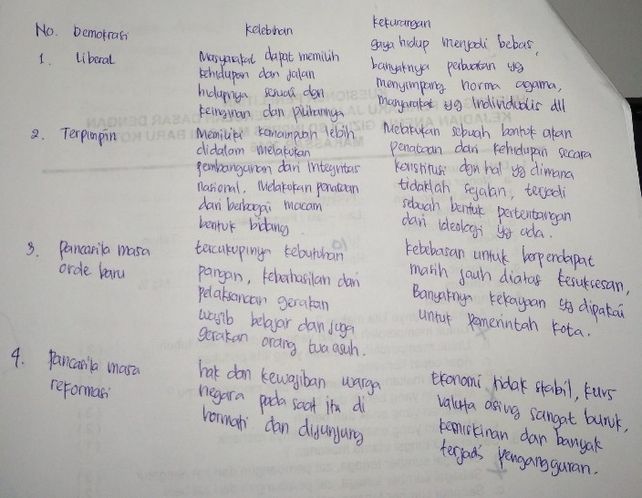 No. Demokrasi Kelebihan Kekurangan
1. Liberal
Masyarakat dapat memilih
kehidupan dan jalan
hidupnya sesuai dgn
keinginan dan pilihannya
gaya hidup menjadi bebas,
banyaknya perbuatan yg
menyimpang norma agama,
masyarakat yg individualis dll
2. Terpimpin
Memiliki kemampuan lebih
didalam melakukan
pembangunan dan integritas
nasional. Melakukan penataan
dari berbagai macam
bentuk bidang.
Melakukan sebuah bentuk akan
penataan dan kehidupan secara
konstitusi dgn hal yg dimana
tidaklah sejalan, terjadi
sebuah bentuk pertentangan
dari ideologi yg ada.
3. Pancasila masa
orde baru
tercukupinya kebutuhan
pangan, kebahasilan dari
pelaksanaan gerakan
wajib belajar dan juga
gerakan orang tua asuh.
kebebasan untuk berpendapat
masih jauh diatas kesuksesan,
Banyaknya kekayaan yg dipakai
untuk pemerintah kota.
4. Pancasila masa
reformasi
hak dan kewajiban warga
negara pada saat itu di
hormati dan dijunjung
Ekonomi tidak stabil, kurs
valuta asing sangat buruk,
kemiskinan dan banyak
terjadi pengangguran.